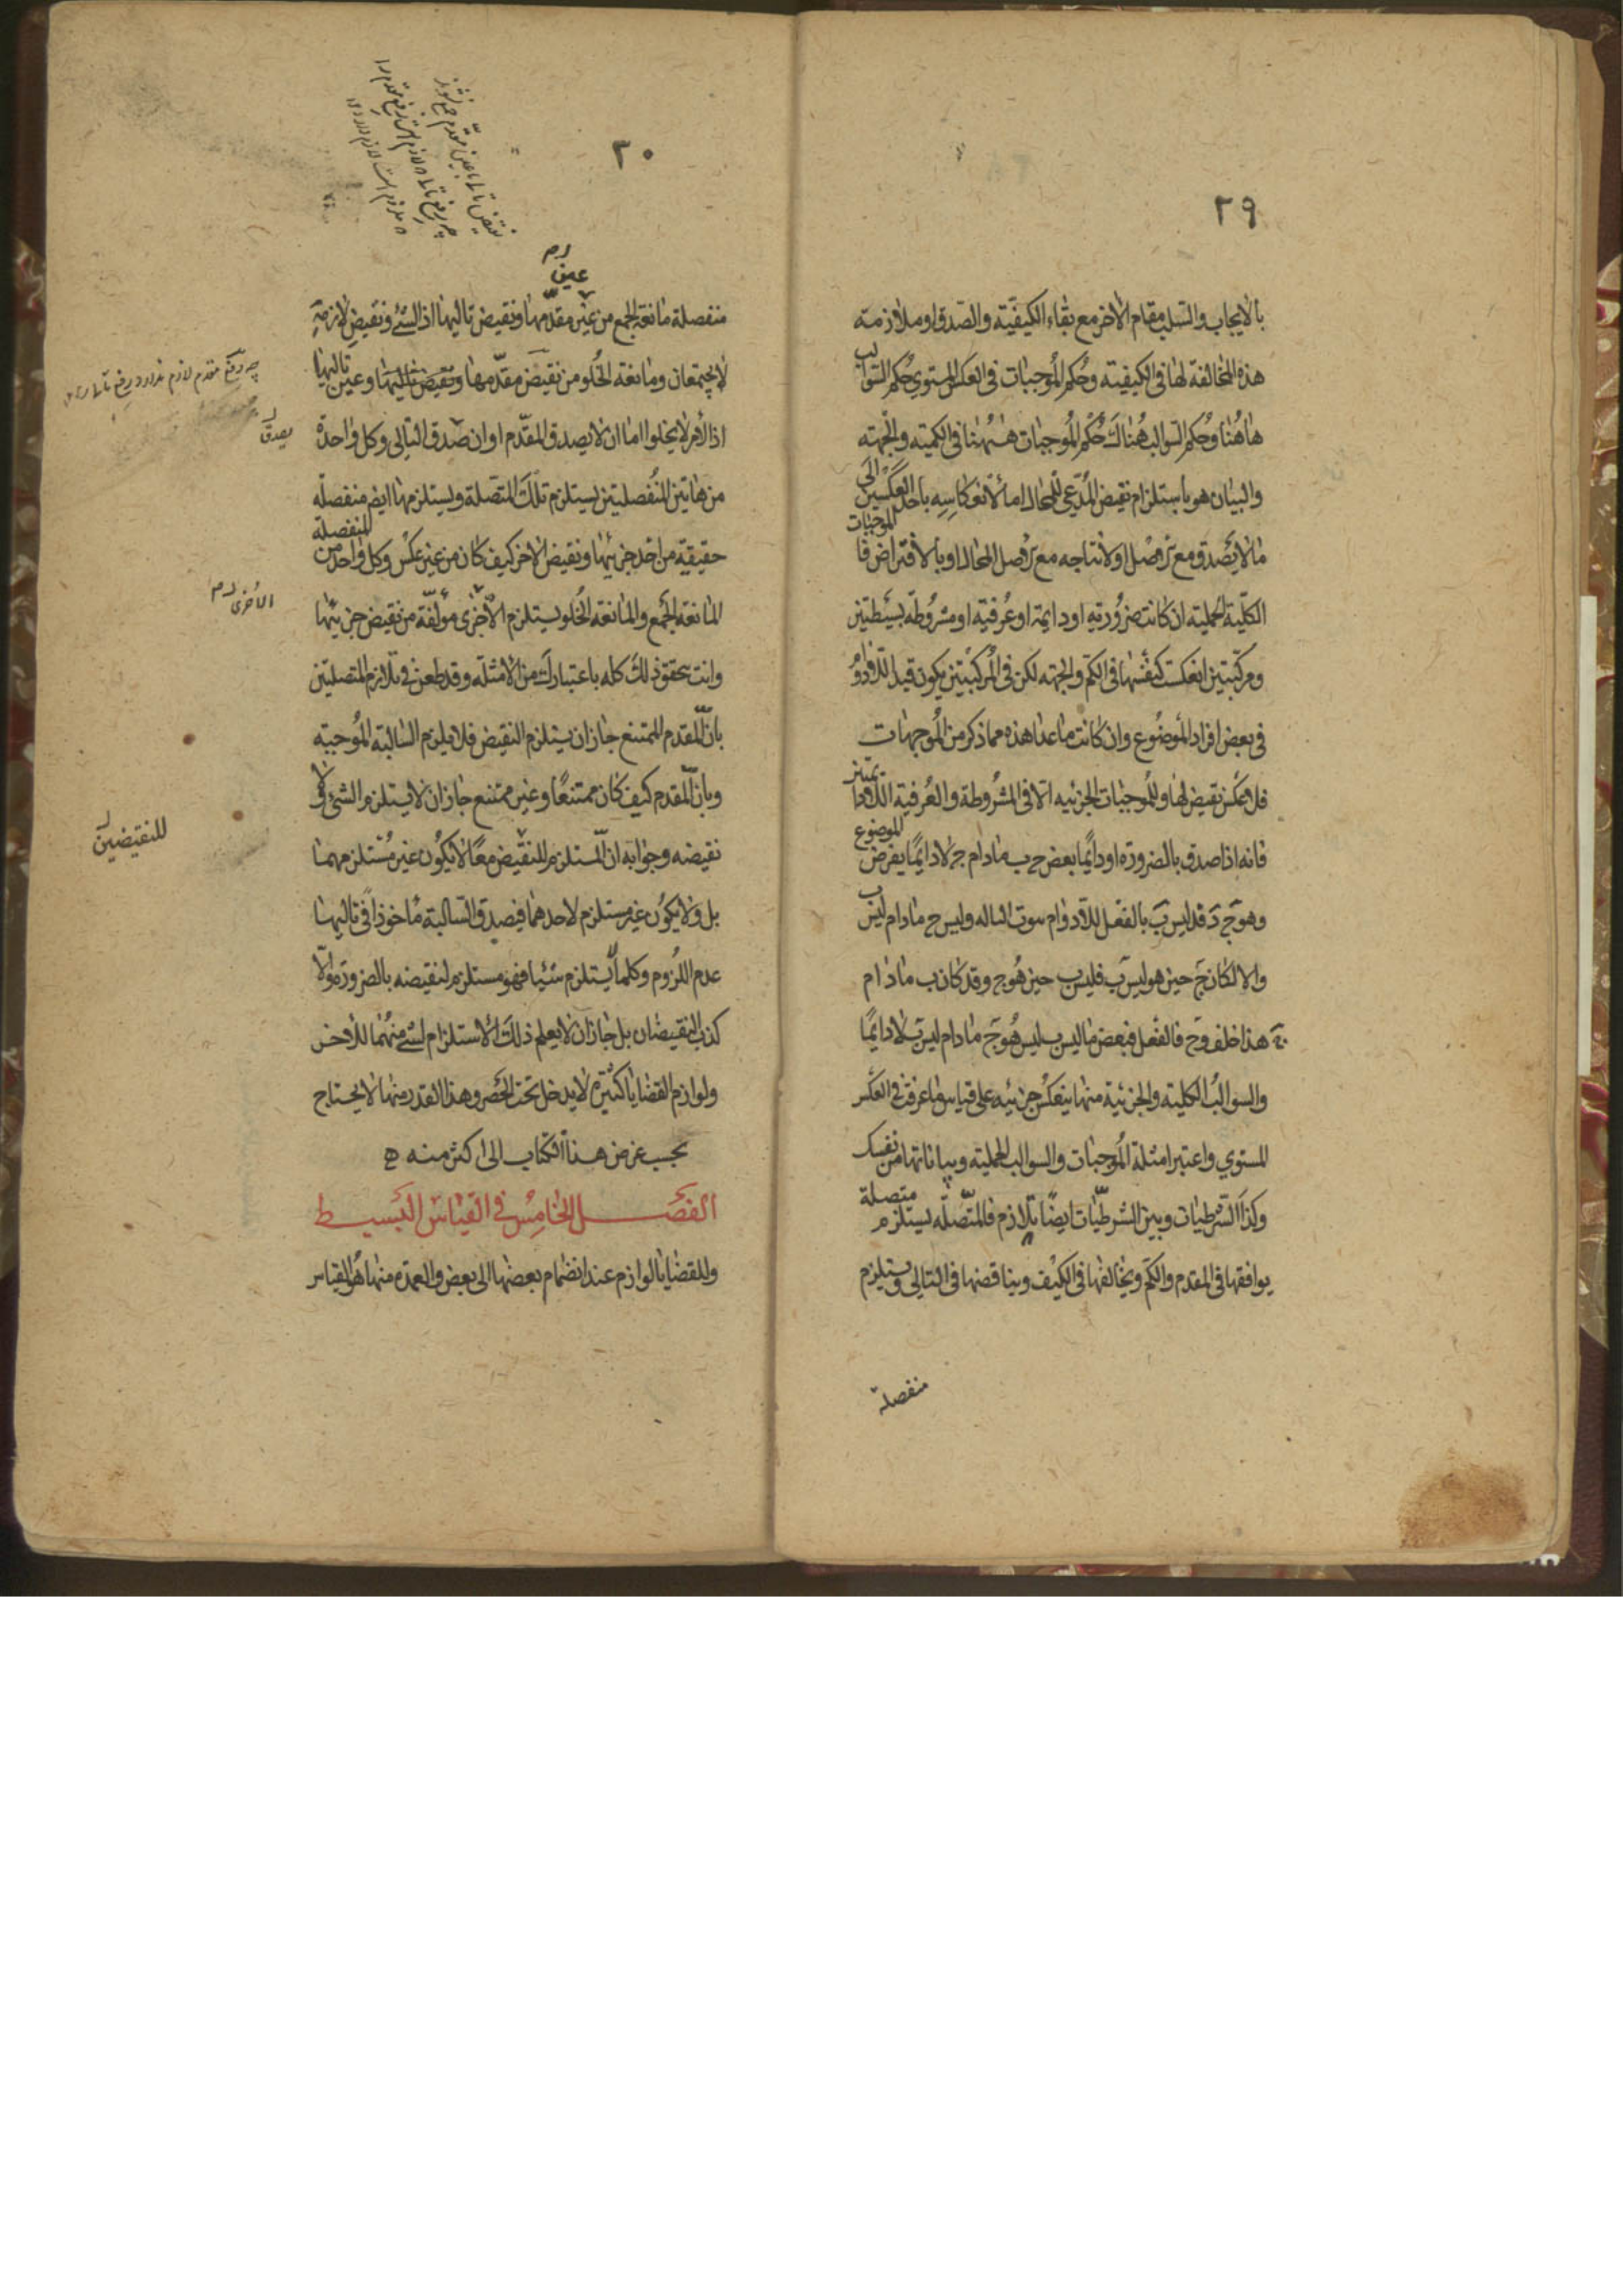 ٢٩
بالايجاب والسلب مقام الاخر مع بقاء الكيفية والصدق او ملازمته
هذه المخالفة لها فى الكيفية وحكم الموجبات فى العكس المستوى حكم السوالب
هاهنا وحكم السوالب هناك حكم الموجبات هٰهنا فى الكمية والجهة
والبيان هو باستلزام نقيض المدعى للمحال اما لانعكاسه باحد العكسين الى
ما لا يصدق مع الاصل او لانتاجه مع الاصل المحال او بالافتراض فالموجبات
الكلية الحملية ان كانت ضرورية او دايمة او عرفية او مشروطة بسيطتين
ومركبتين انعكست كنفسها فى الكم والجهة لكن فى المركبتين يكون قيد اللادوام
فى بعض افراد الموضوع وان كانت ما عدا هذه مما ذكر من الموجهات
فلا عكس نقيض لها وللموجبات الجزئيه الا فى المشروطة والعرفية اللادايمتين
فانه اذا صدق بالضرورة او دايمًا بعض ج ب مادام ج لا دايمًا يفرض الموضوع
وهو ج د فد ليس ب بالفعل للادوام ثبوت الباء له وليس ج مادام ليس ب
والا لكان ج حين هو ليس ب فليس ب حين هو ج وقد كان ب مادام
ج هذا خلف وج بالفعل فبعض ما ليس ب ليس هو ج مادام ليس ب لا دايمًا
والسوالب الكلية والجزئية منها ينعكس جزئيه على قياس ما عرفت فى العكس
المستوي واعتبر امثلة الموجبات والسوالب الحملية وبياناتها من نفسك
وكذا الشرطيات وبين الشرطيات ايضًا تلازم فالمتصله يستلزم متصلة
يوافقها فى المقدم والكم ويخالفها فى الكيف ويناقضها فى التالى ويستلزم
منفصلة
٣٠
عين
منفصلة مانعة الجمع من عين مقدمها ونقيض تاليها اذ الشئ ونقيض لازمه
لا يجتمعان ومانعة الخلو من نقيض مقدمها ونقيض تاليها وعين تاليها
اذ الأمر لا يخلوا اما ان لا يصدق المقدم او ان صدق التالى وكل واحدة
يصدق
من هاتين المنفصلتين يستلزم تلك المتصلة ويستلزمها ايض منفصلة
حقيقية من احد جزئيها ونقيض الاخر كيف كان من غير عكس وكل واحد من المنفصلة
المانعة الجمع والمانعة الخلو يستلزم الاخرى مؤلفة من نقيض جزئيها
الأخرى
وانت تحقق ذلك كله باعتبارك من الأمثلة وقد طعن فى تلازم المتصلتين
بان المقدم الممتنع جاز ان يستلزم النقيض فلا يلزم السالبة الموجبة
وبان المقدم كيف كان ممتنعًا وغير ممتنع جاز ان لا يستلزم الشئ ولا
نقيضه وجوابه ان المستلزم للنقيض معًا لا يكون غير مستلزم مهما
للنقيضين
بل ولا يكون غير مستلزم لاحدهما فيصدق السالبة مأخوذا فى تاليها
عدم اللزوم وكلما لا يستلزم شئيا فهو مستلزم لنقيضه بالضرورة والا
كذب النقيضان بل جاز ان لا يعلم ذلك الاستلزام لشئ منهما للاخر
ولوازم القضايا كثيرة لا يدخل تحت الحصر وهذا القدر منها لا يحتاج
بحسب غرض هذا الكتاب الى اكثر منه
الفصل الخامس فى القياس البسيط
وللقضايا لوازم عند انضمام بعضها الى بعض والعمدة منها هو القياس